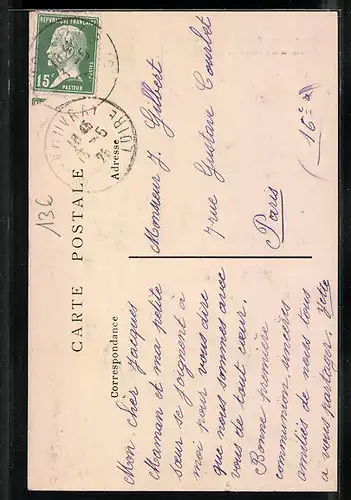 REPUBLIQUE FRANÇAISE
15c
POSTES
PASTEUR
136
CARTE POSTALE
Correspondance
Adresse
Mon Cher Jacques
Maman et ma petite
sœur se joignent à
moi pour vous dire
que nous sommes avec
vous de tout cœur.
Bonne première
communion, sincères
amitiés de nous tous
à vous partager.
Monsieur J. Gilbert
7 rue Gustave Courbet
Paris
(16e)